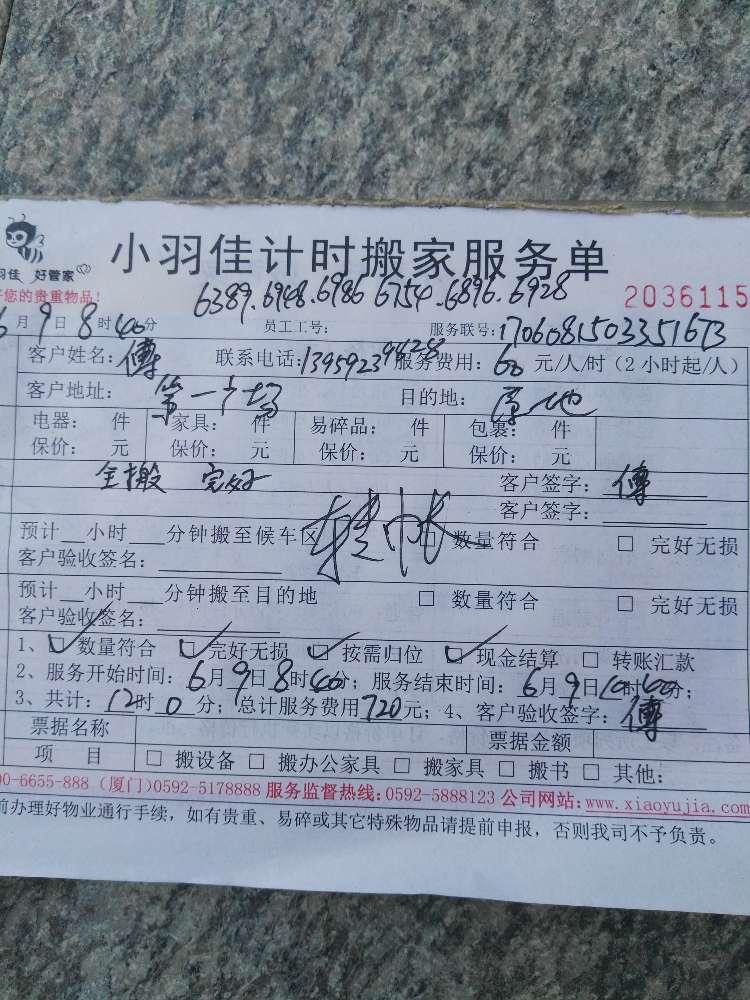 小羽佳计时搬家服务单
羽佳 好管家
好您的贵重物品!
6389.6948.6986 6754.6896.6928
2036115
6月9日8时40分 员工工号: 服务联号:
客户姓名:傅 联系电话: 服务费用:60元/人/时(2小时起/人)
客户地址:第一广场 目的地:原地
电器: 件 家具: 件 易碎品: 件 包裹: 件
保价: 元 保价: 元 保价: 元 保价: 元
全搬 完好 客户签字:傅
客户签字:
预计__小时___分钟搬至候车区 □ 数量符合 □ 完好无损
客户验收签名:
预计__小时___分钟搬至目的地 □ 数量符合 □ 完好无损
客户验收签名:
1、☑数量符合 ☑完好无损 ☑按需归位 ☑现金结算 □ 转账汇款
2、服务开始时间:6月9日8时40分;服务结束时间:6月9日10时40分;
3、共计:12时0分;总计服务费用720元;4、客户验收签字:傅
票据名称 票据金额
项 目 □ 搬设备 □ 搬办公家具 □ 搬家具 □ 搬书 □ 其他:
00-6655-888(厦门)0592-5178888 服务监督热线:0592-5888123 公司网站:www.xiaoyujia.com
前办理好物业通行手续,如有贵重、易碎或其它特殊物品请提前申报,否则我司不予负责。